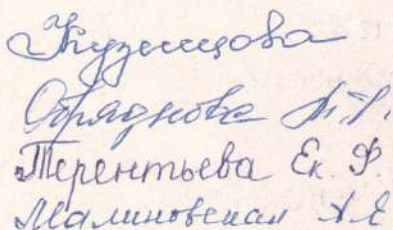 Кузнецова
Обряднова А.Р.
Терентьева Ек. Ф.
Малиновская А.Е